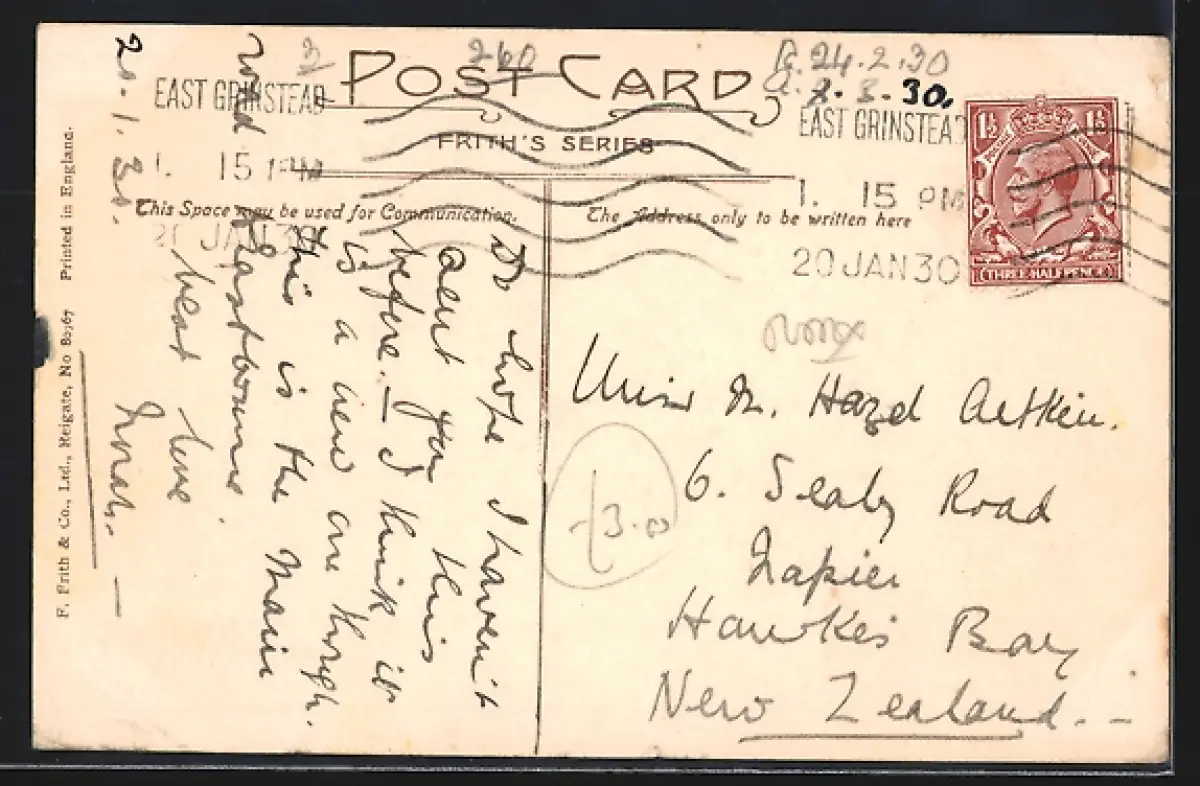 20.1.30.
3
260
R. 24.2.30
A. 2.3.30.
POST CARD
FRITH'S SERIES
EAST GRINSTEAD
1. 15 PM
20 JAN 30
EAST GRINSTEAD
1. 15 PM
20 JAN 30
1½ 1½
THREE-HALFPENCE
This Space may be used for Communication.
The Address only to be written here
Do hope I haven't
sent you this
before. — I think it
is a new one though.
this is the main
Eastbourne
road
best love
Norah. —
Miss M. Hazel Aitken.
6. Sealy Road
Napier
Hawkes Bay
New Zealand. -
F. Frith & Co., Ltd., Reigate, No 80767 Printed in England.